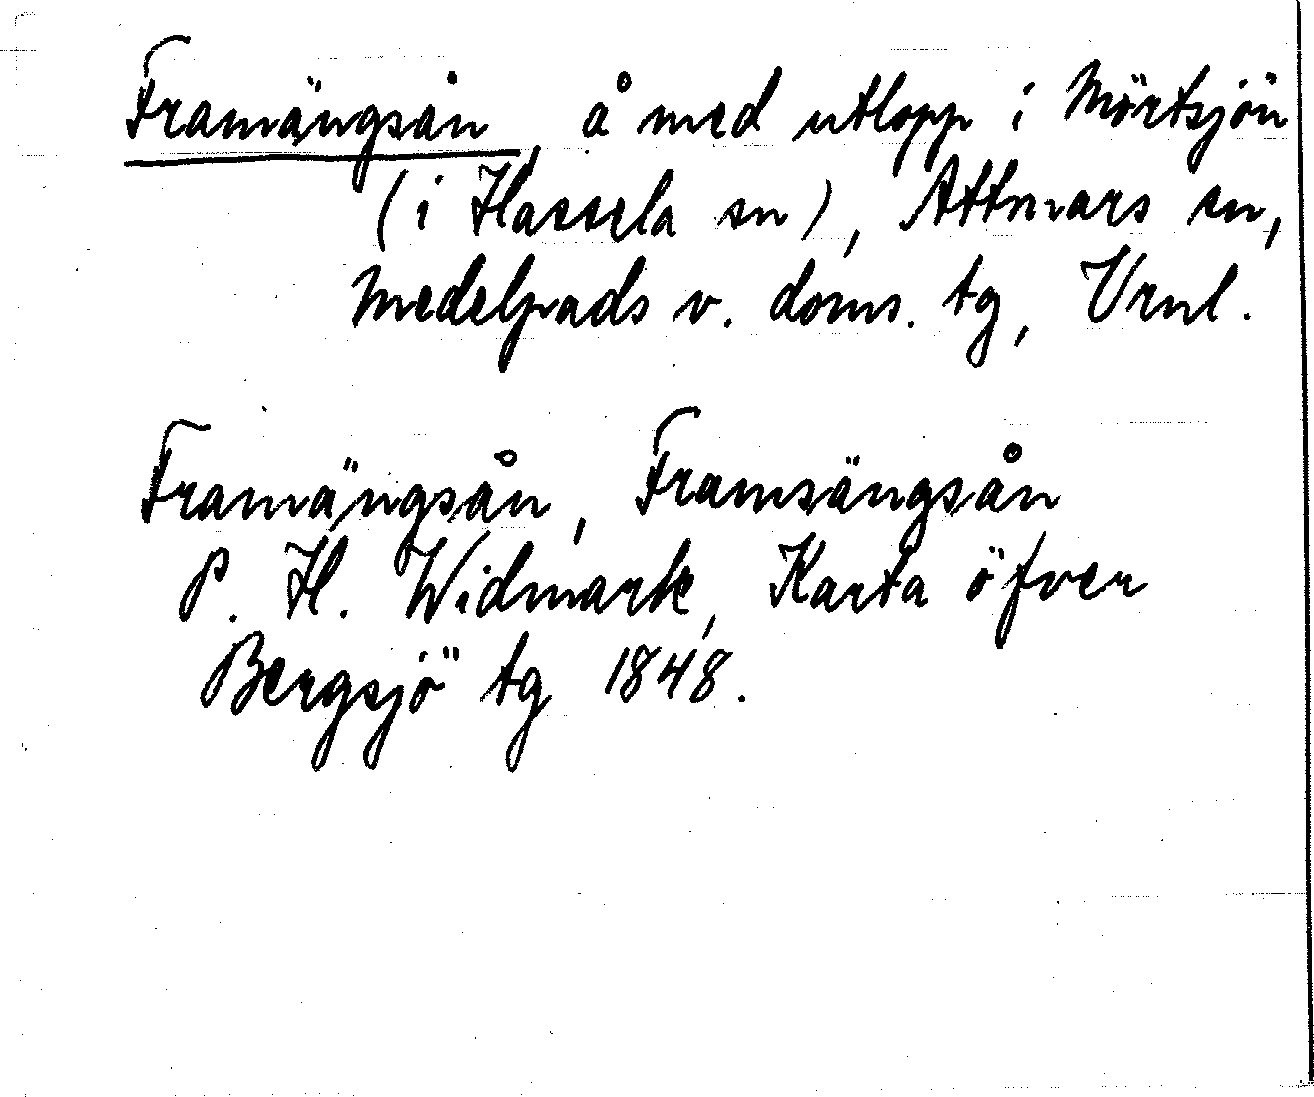 Framängsån, å med utlopp i Mörtsjön
(i Hassela sn), Attmars sn,
Medelpads v. doms. tg, Vrnl.
Framängsån, Framsängsån
P. H. Widmark, Karta öfver
Bergsjö tg 1848.